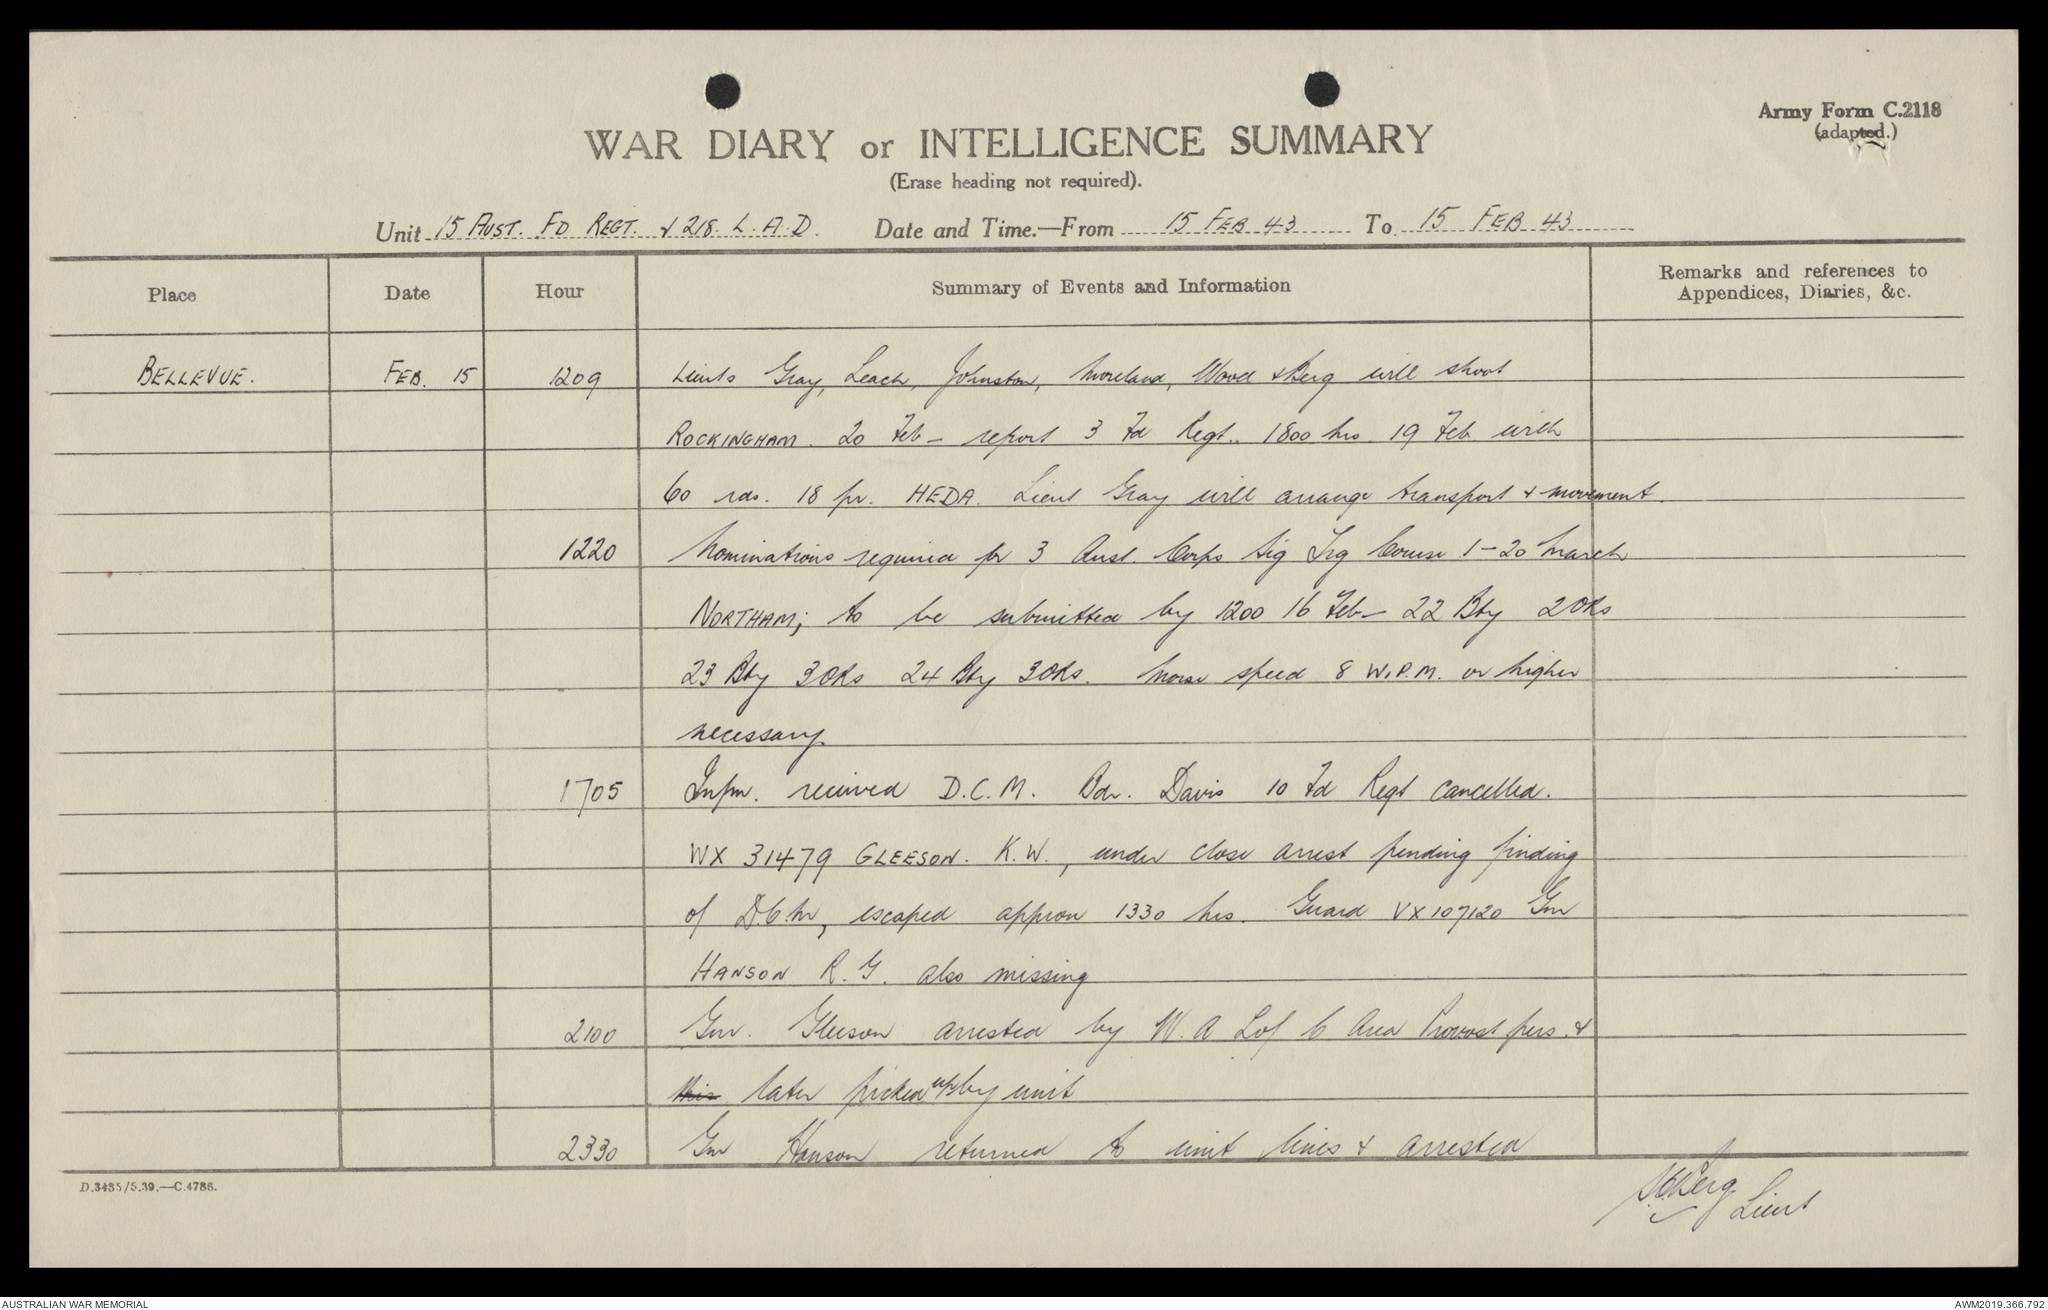 Army Form C.2118
(adapted.)
WAR DIARY or INTELLIGENCE SUMMARY
(Erase heading not required).
Unit 15 AUST. FD REGT. & 218. L.A.D. Date and Time.—From 15 FEB 43 To 15 FEB 43
Place Date Hour Summary of Events and Information Remarks and references to
Appendices, Diaries, &c.
BELLEVUE. FEB. 15 1209 Lieuts Gray, Leach, Johnston, Moreland, Wood & Berg will shoot
ROCKINGHAM. 20 Feb - report 3 Fd Regt. 1800 hrs. 19 Feb with
60 rds. 18 pr. HEDA. Lieut Gray will arrange transport & movement.
1220 Nominations required for 3 Aust. Corps Sig Trg Course 1-20 March
NORTHAM; to be submitted by 1200 16 Feb - 22 Bty 2 ORs
23 Bty 3 ORs 24 Bty 3 ORs. Morse speed 8 W.P.M. or higher
necessary.
1705 Infm. received D.C.M. Bdr. Davis 10 Fd Regt cancelled.
WX 31479 GLEESON. K.W., under close arrest pending finding
of D.C.M, escaped approx 1330 hrs. Guard VX107120 Gnr
HANSON R.G. also missing
2100 Gnr. Gleeson arrested by W.A L of C Area Provost pers. &
this later picked up by unit
2330 Gnr Hanson returned to unit lines & arrested
Berg Lieut
D.3485/5.39.—C.4786.
AUSTRALIAN WAR MEMORIAL AWM2019.366.792